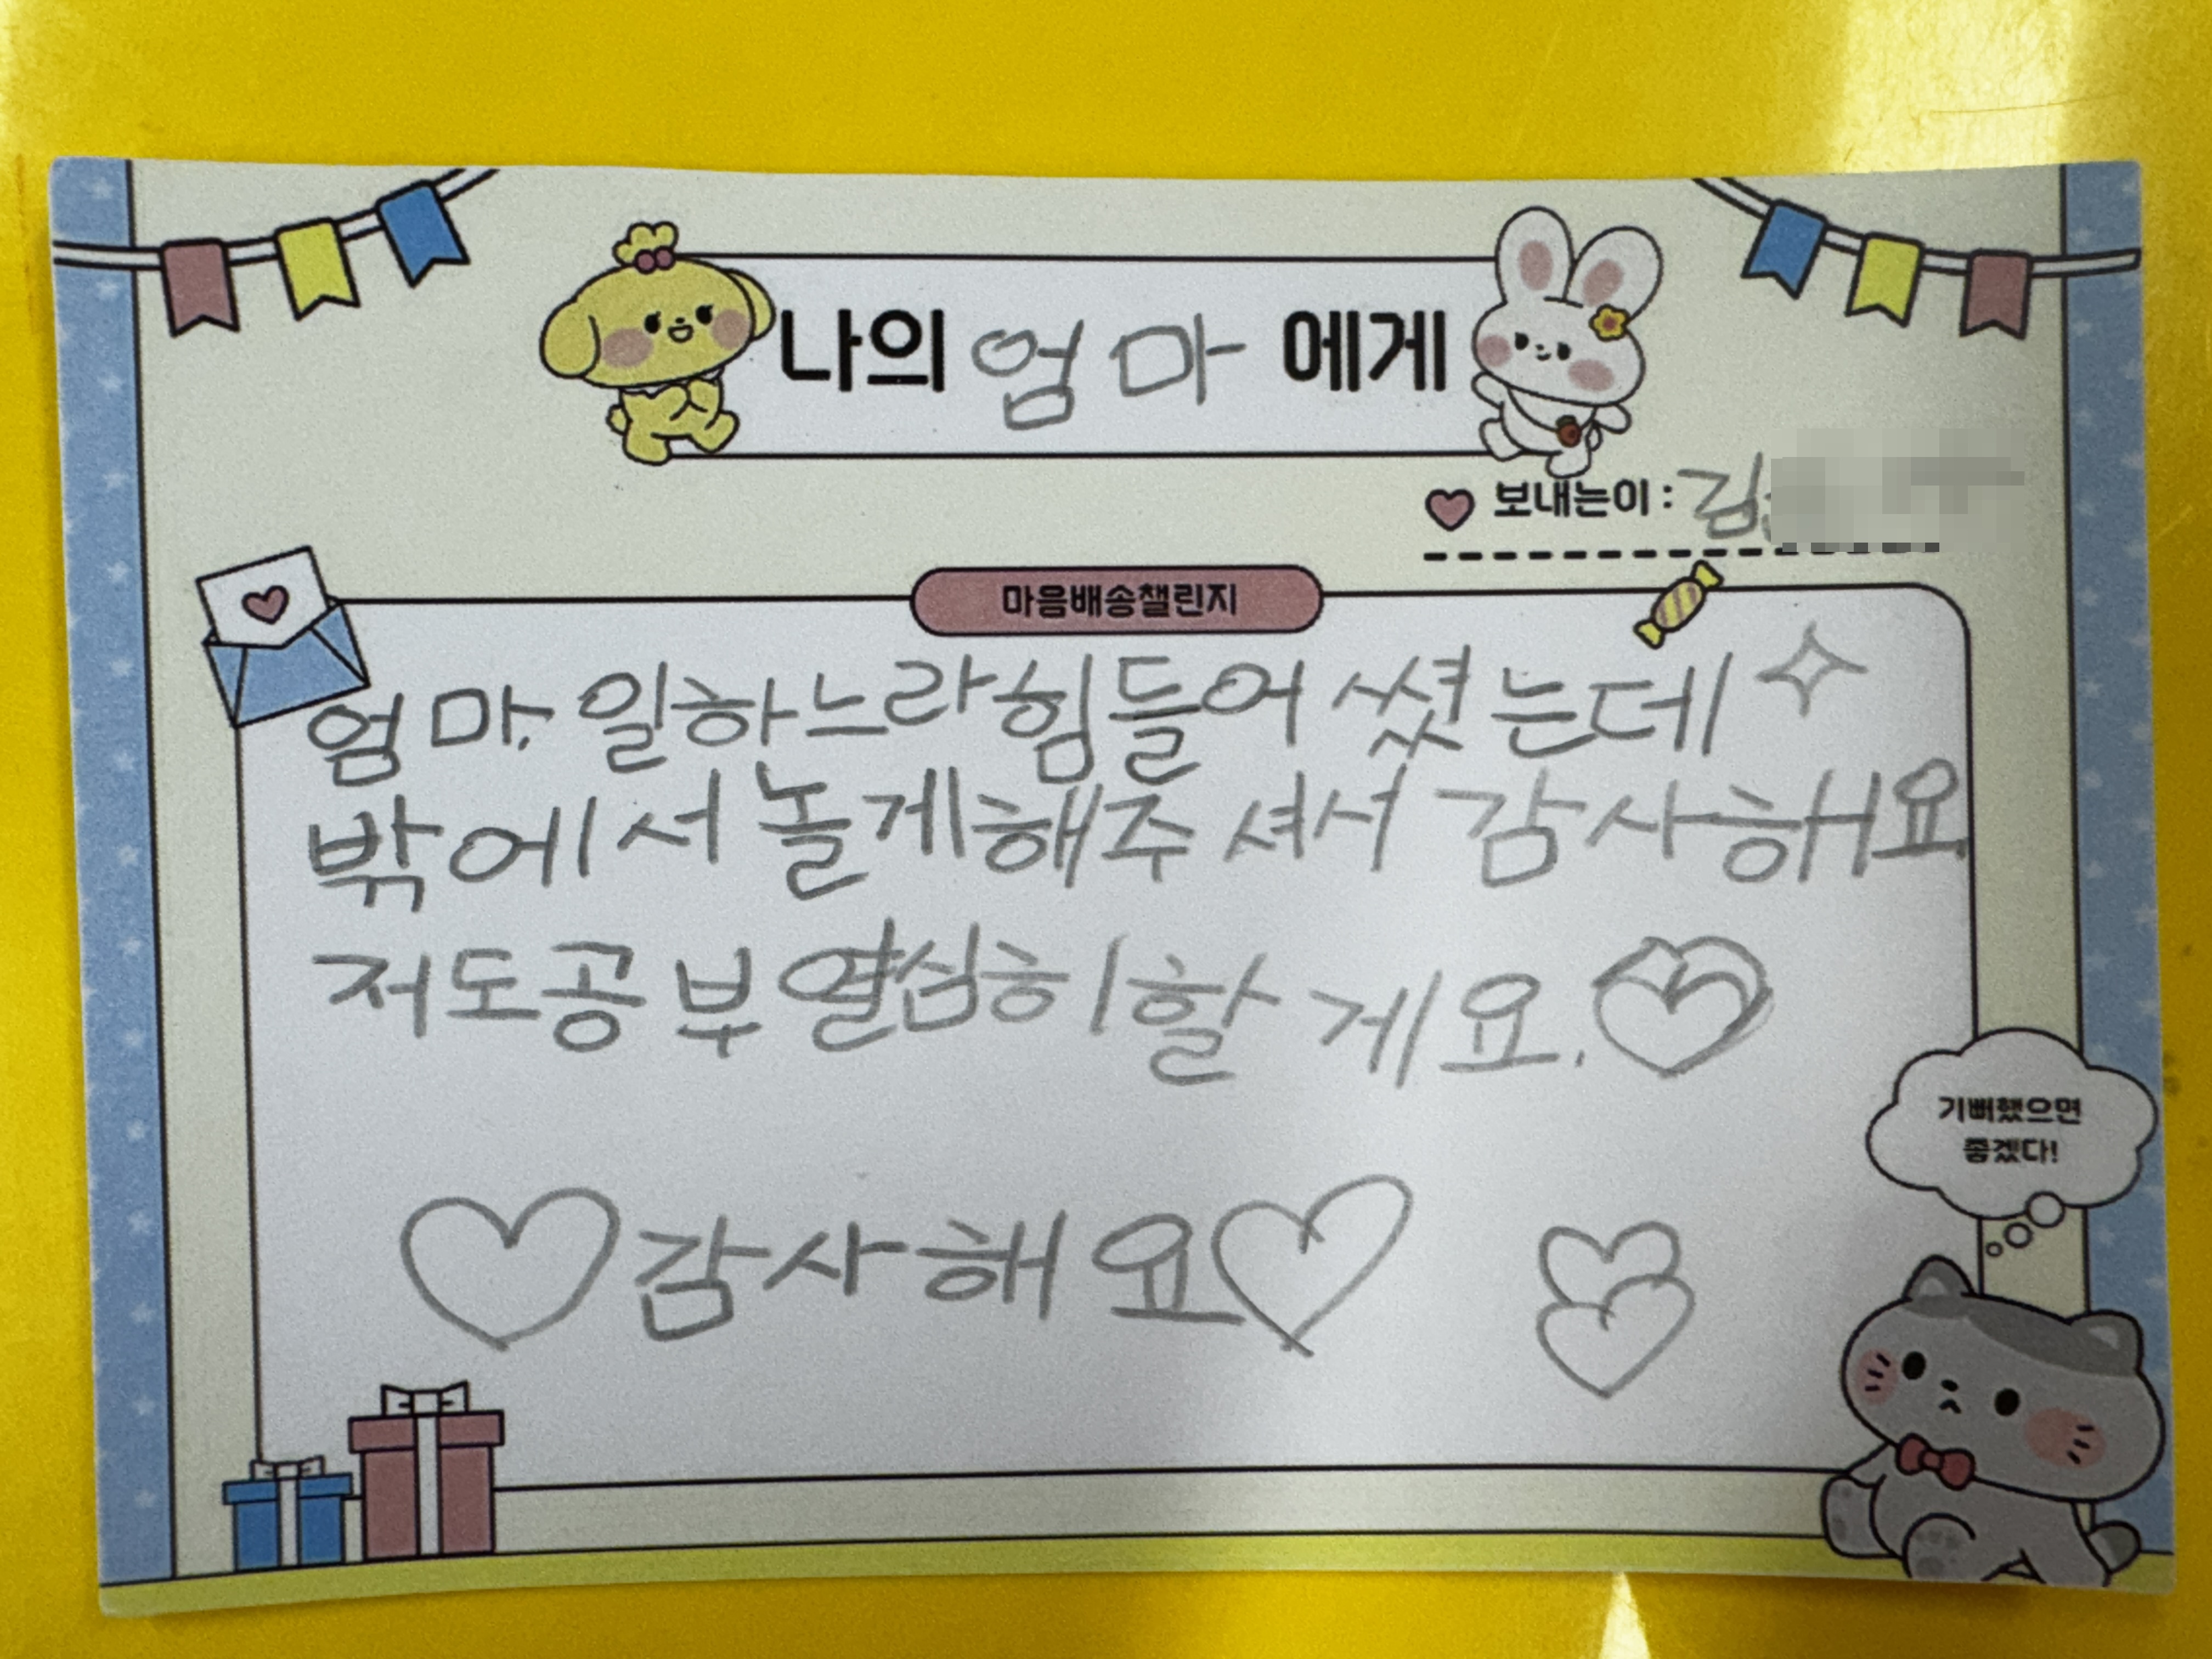 나의 엄마 에게
보내는이 : 김
마음배송챌린지
엄마. 일하느라 힘들어 쎴는데
밖에서 놀게해주셔서 감사해요.
저도공부열심히할게요.
감사해요
기뻐했으면
좋겠다!